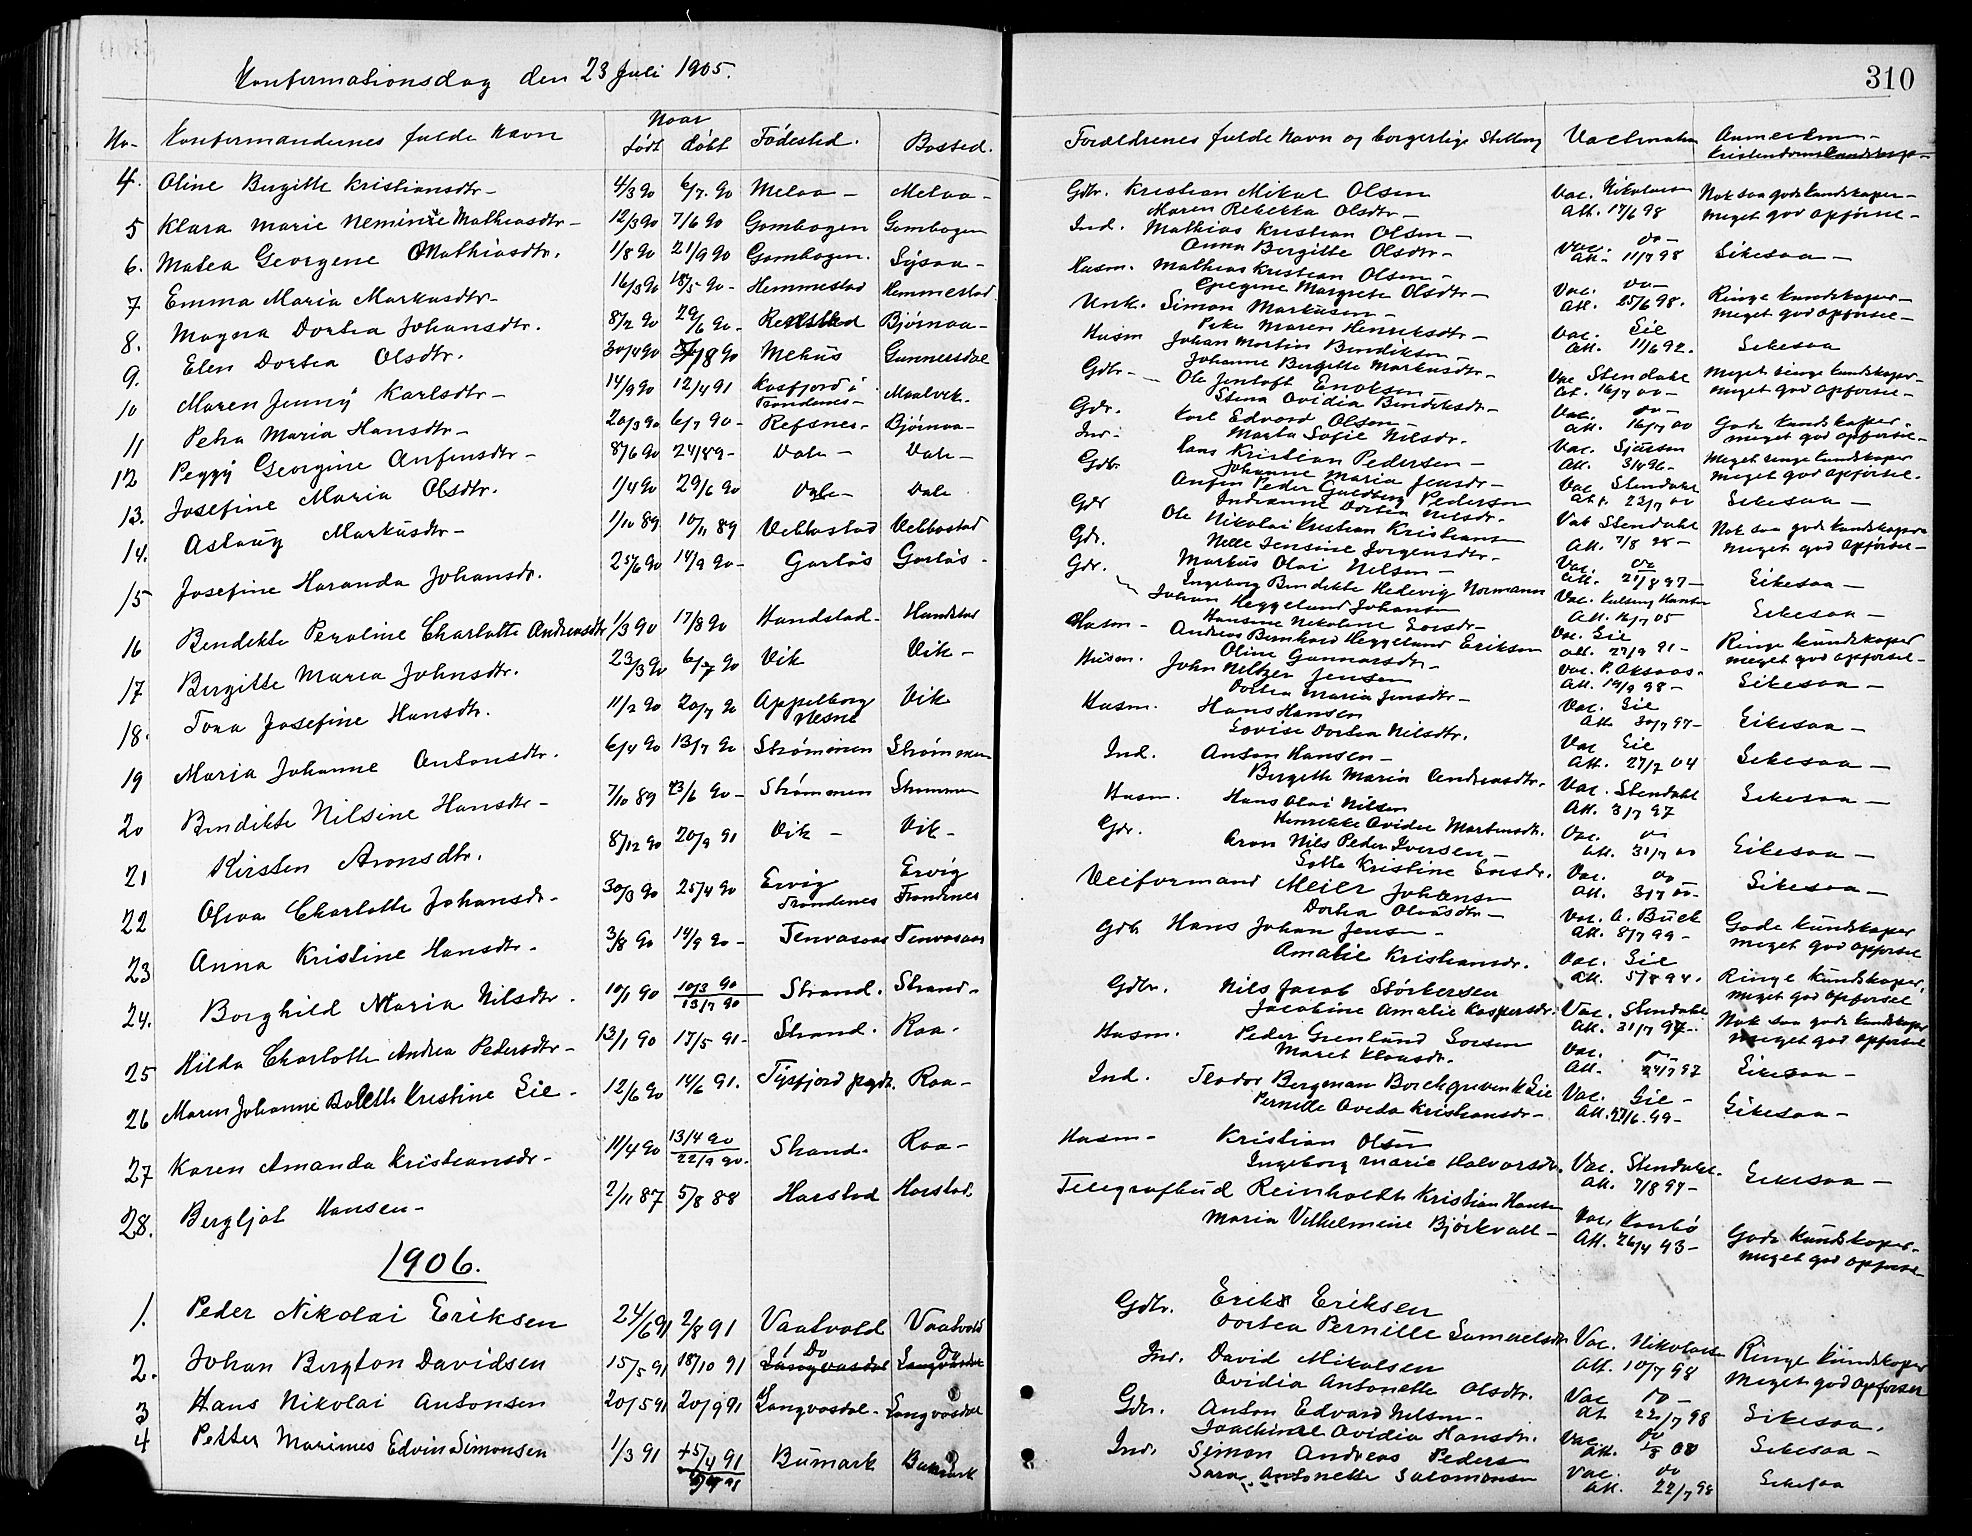 310
Konfirmationsdag den 23 Juli 1905.
No. Konfirmandernes fulde Navn Naar født døbt Fødested. Bosted. Forældrenes fulde Navn og borgerlige Stilling
4. Oline Birgitte Kristiansdtr- 4/3 90 6/7. 90 Meloa- Meloa- Gdbr. Kristian Mikal Olsen Vac. Nikolaisen Nok saa gode kundskaper-
Maren Rebekka Olsdtr- Att. 17/6 98 meget god opførsel-
5 Klara Marie Neminie Mathiasdtr- 12/3 90 7/6 90 Gombogen Gombogen Ind. Mathias Kristian Olsen- Vac. do-
Anna Bergitte Olsdtr- Att. 11/7 98 Likesaa-
6. Matea Georgene Mathiasdtr. 1/8 90 21/9 90 Gombogen. Husm. Mathias Kristian Olsen- Vac. do- Ringe kundskaper-
Margrete Olsdtr- Att. 25/6 98. meget god opførsel-
7 Emma Maria Markusdtr- 16/3 90 18/5 90- Hemmestad Hemmestad Simon Markussen- Vac. Lie
Maren Henriksdtr- Att. 11/6 92. Likesaa
8. Magna Dortea Johansdtr. 8/2 90 29/6 90- Bjørnaa- Husm Johan Martin Bendiksen- Vac Stendahl Meget ringe kundskaper-
Johanne Bergitte Markusdtr- Att. 16/7 00- meget god opførsel-
9. Elen Dortea Olsdtr. 30/4 90 Mehus Gunnersdal Gdbr- Ole Jentoft Enoksen Vac. do-
Stina Ovidia Bendiksdtr- Att. 16/7 00 Gode kundskaper.
meget god opførsel-
10 Maren Jenny Karlsdtr- 14/9 90 12/4 91 Kasfjord i Trondenes- Maalvik. Gdr. Karl Edvard Olsen-
Marta Sofie Nilsdr. meget god opførsel.
11 Petra Maria Hansdtr- 20/3 90 6/7 90- Refsnes- Bjørnaa- Ind- Hans Kristian Pedersen- Vac Stendahl
Johanne Maria Jensdr- Att. 23/7 00 Likesaa-
12 Peggy Georgine Anfinsdtr- 8/6 90 24/8 9- Vale- Vale- Gdbr. Anfin Peder Pedersen Vac Stendahl Nok saa gode kundskaper
Indianna Dortea Nilsdr. Att. 7/8 98- meget god opførsel-
13. Josefine Maria Olsdtr. 1/4 90 29/6 90 Vale- Vale Gdr Ole Nikolai Kristian Kristiansen Vac. do
Nelle Jensine Jorgensdtr- Att. 21/8 97- Likesaa-
14. Aslaug Markusdtr- 1/10 89 10/11 89 Vebbostad Vebbostad Gdr. Markus Olai Nilsen- Vac. Hansen
Ingeborg Bendikte Hedevig Normann Att. 16/7 05 Likesaa-
15 Josefine Haranda Johansdr. 25/6 90 14/9 90- Garlös Garlös- Gdr. Johan Heggelund Johansen Vac. Lie Ringe kundskaper
Hansine Nikoline Att. 27/9 91- meget god opførsel-
16 Bendikte Peroline Charlotte Andreasdtr 1/3 90 17/8 90 Handstad- Handstad Husm- Andreas Bernhard Heggelund Eriksen
Oline Gunnarsdtr- Att. 19/9 98- Likesaa-
17 Birgitte Maria Johnsdtr. 23/3 90 6/7 90 Vik Vik- Husm. John Jensen Vac. Lie
Dortea Maria Jensdtr- Att. 30/7 97- Likesaa-
18. Tora Josefine Hansdtr. 11/2 90 20/7 90 Appelborg Nesne Vik Husm. Hans Hansen Vac Lie
Lovise Dortea Nilsdtr. Att. 27/7 04 Likesaa-
19 Maria Johanne Antonsdtr. 6/4 90 13/7 90 Strømmen Strømmen Ind. Anton Hansen- Vac. Stendahl
Bergitte Maria Andreasdtr. Att. 31/7 97 Likesaa-
20 Bendikte Nilsine Hansdtr- 7/10 89 23/6 90- Strømmen Strømmen Husm. Hans Olai Nilsen Vac. do
Henrikke Ovidie Martinsdtr. Att. 31/7 00 Likesaa-
21 Kirsten Aronsdtr. 8/12 90 20/9 91 Vik- Vik- Gdr. Aron Nils Peder Iversen- Vac. do
Kristine Att. 31/7 00- Likesaa-
22 Olava Charlotte Johansdr- 30/3 90 25/4 90 Ervig Trondenes Ervig Trondenes Veiformand Meier Johansen Vac. A. Buck Gode kundskaper
Dortea Olausdtr- Att. 8/7 99- meget god opførsel
23 Anna Kristine Hansdtr- 3/8 90 14/9 90- Tenvasaas Tenvasaas Gdb Hans Johan Jensen- Vac. Lie Ringe kundskaper,
Amalie Kristiansdr. Att. 5/8 94. meget god opførsel
24. Borghild Maria Nilsdtr. 10/1 90 10/3 90 13/7 90 Strand. Strand- Gdbr. Nils Jacob Störkersen Vac. Stendahl Nok saa gode kundskaper
Jacobine Amalie Kaspersdr. Att. 31/7 97- meget god opførsel
25 Hilda Charlotte Andrea Pedersdtr- 13/1 90 17/5 91- Strand. Roa- Husm. Peder Grønlund Vac. do-
Maret Klausdr. Att. 24/7 97 Likesaa-
26 Maren Johanne Bolette Kristine Lie- 12/6 90 14/6 91. Tysfjord prgd. Roa- Ind. Teodor Bergman Borchgrevink Lie Vac. Lie-
Pernille Oveda Kristiansdr- Att. 27/6. 99- Likesaa-
27 Karen Amanda Kristiansdr- 11/4 90 13/4 90 22/9 90. Strand- Roa- Husm- Kristian Olsen Vac. Stendahl.
Ingeborg Marie Halvorsdr. Att. 7/8 97- Likesaa-
28. Bergljot Hansen- 2/11 87 5/8 88 Harstad Harstad. Telegrafbud Reinholdt Kristian Hansen Vac. Gode kundskaper-
Maria Vilhelmine Björkvall- Att. 26/4 93- meget god opførsel
1906.
1. Peder Nikolai Eriksen 24/6 91 2/8 91 Vaatvold Vaatvold Gdbr. Erik Eriksen Vac. Nikolaisen Ringe kundskaper
Dortea Pernille Samuelsdtr Att. 10/7 98 Meget god opførsel
2. Johan Bergton Davidsen 15/5 91 18/10 91 Do Langvasdal Do Langvasdal Ind. David Mikalsen Vac do-
Ovidia Antonette Olsdtr. Att 22/7 98 Likesaa.
3 Hans Nikolai Antonsen 20/5 91 20/9 91 Langvasdal- Langvasdal Gdr. Anton Edvard Nilsen- Vac do
Ovidia Hansdr. Att. Likesaa-
4 Petter Marimes Edvin Simonsen 1/3 91 Bumark Bumark Ind. Simon Andreas Pedersen Vac. do
Sara Antonette Salomonsen Att. 22/7 98 Likesaa